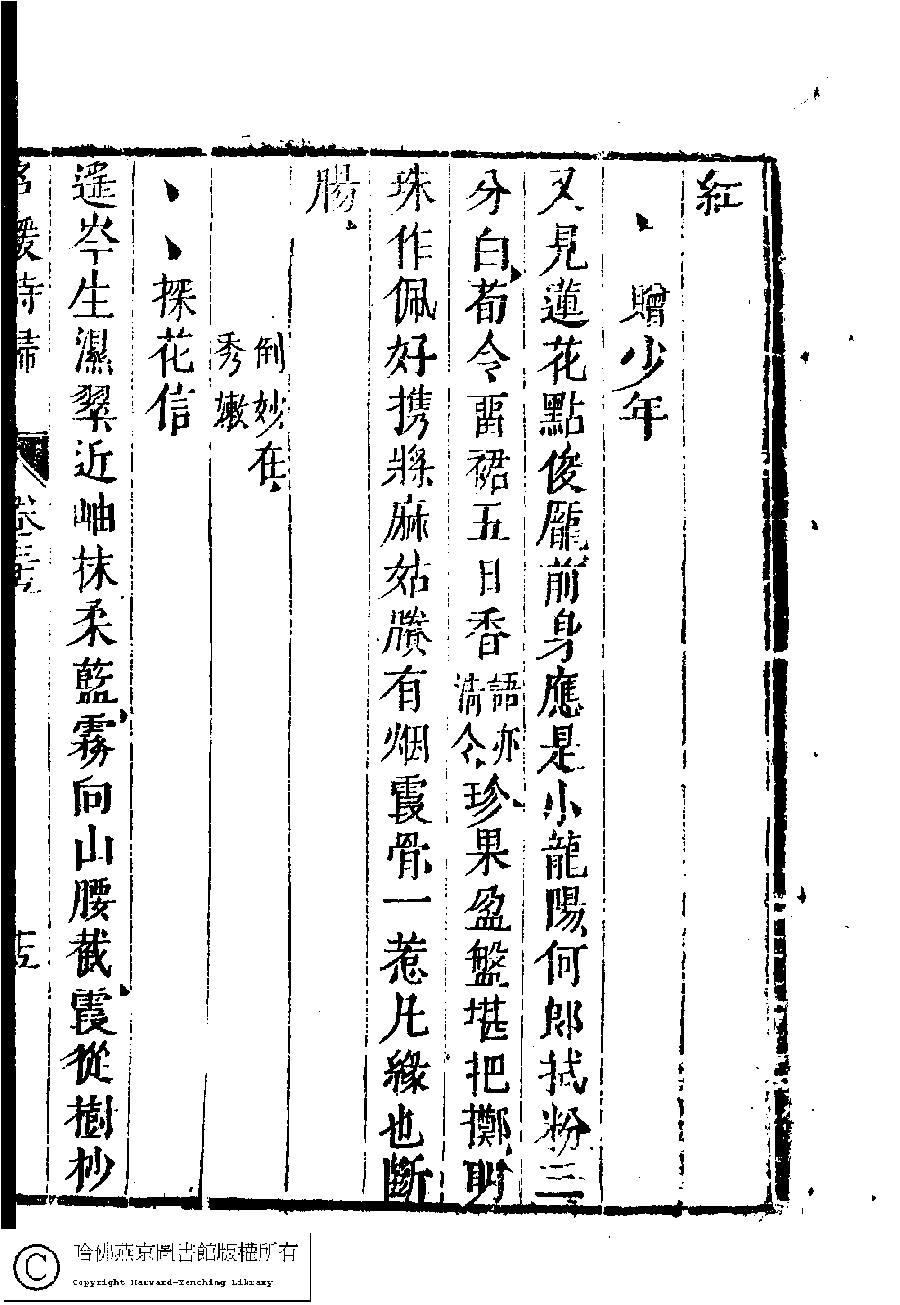 紅
贈少年
又見蓮花點俊龎前身應是小龍陽何郎拭粉三
分白荀令畱裙五日香語亦清令珍果盈盤堪把擲明
珠作佩好携將麻姑賸有烟霞骨一惹凡緣也斷
腸
倒妙在
秀嫩
探花信
遥岑生濕翠近岫抹柔藍霧向山腰截霞從樹杪
名媛詩歸
哈佛燕京圖書館版權所有
Copyright Harvard-Yenching Library